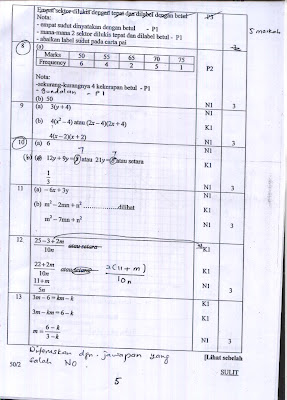 Empat sektor dilukis dengan tepat dan dilabel dengan betul P3
5 markah
Nota:
- empat sudut dinyatakan dengan betul - P1
- mana-mana 2 sektor dilukis tepat dan dilabel betul - P1
- abaikan label sudut pada carta pai
8 (a)
Marks 50 55 65 70 75
Frequency 6 4 2 5 1
P2
Nota:
-sekurang-kurangnya 4 kekerapan betul - P1
- gundalan - P1
(b) 50 N1 3
9 (a) 3(y + 4) N1
(b) 4(x² – 4) atau (2x – 4)(2x + 4) K1
4(x – 2)(x + 2) N1 3
10 (a) 6 N1
7 7
(b) 12y + 9y = atau 21y = atau setara K1
1/3 N1 3
11 (a) -6x + 3y N1
(b) m² – 2mn + n² ..................dilihat K1
m² – 7mn + n² N1 3
12 25 – 3 + 2m / 10n atau setara K1
22 + 2m / 10n atau setara 2(11 + m) / 10n K1
11 + m / 5n N1 3
13 3m – 6 = km – k K1
3m – km = 6 – k K1
m = 6 – k / 3 – k N1 3
Diteruskan dgn. jawapan yang
salah N0.
[Lihat sebelah
50/2 SULIT
5